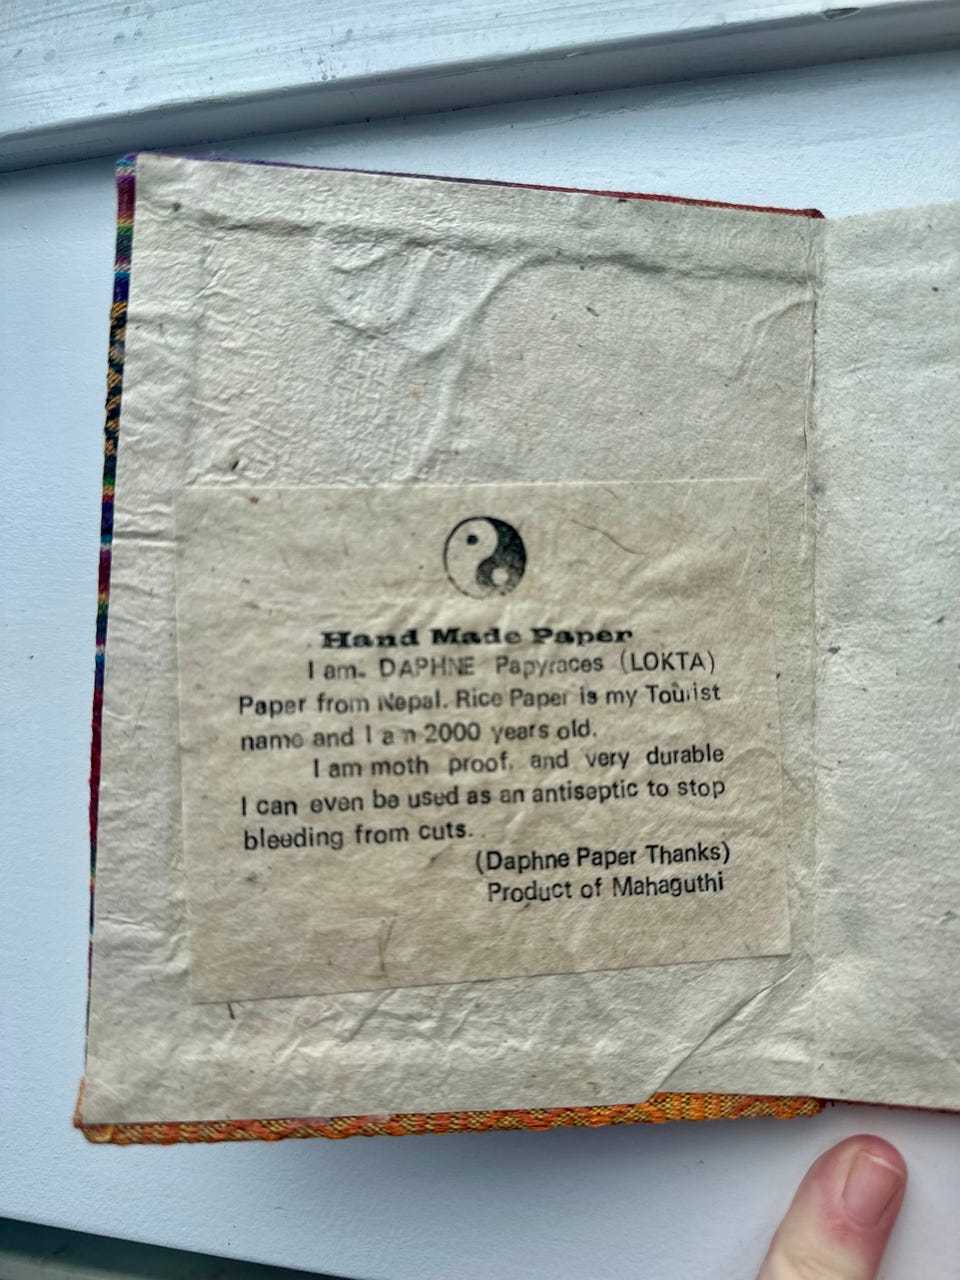 Hand Made Paper
I am. DAPHNE Papyraces (LOKTA)
Paper from Nepal. Rice Paper is my Tourist
name and I am 2000 years old.
I am moth proof. and very durable
I can even be used as an antiseptic to stop
bleeding from cuts.
(Daphne Paper Thanks)
Product of Mahaguthi